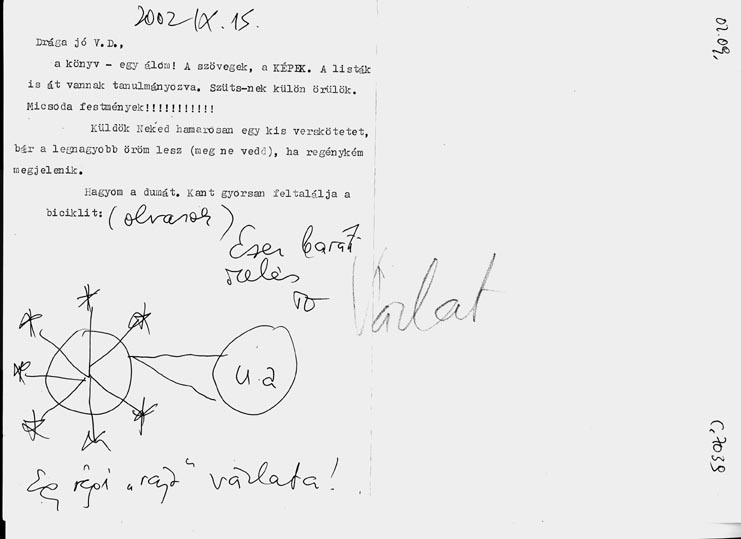 2002 IX. 15.
Drága jó V.D.,
a könyv – egy álom! A szövegek, a KÉPEK. A listák
is át vannak tanulmányozva. Szüts-nek külön örülök.
Micsoda festmények!!!!!!!!!!!
Küldök Neked hamarosan egy kis verskötetet,
bár a legnagyobb öröm lesz (meg ne vedd), ha regénykém
megjelenik.
Hagyom a dumát. Kant gyorsan feltalálja a
biciklit: (olvasok)
Ezer barát
ölelés
u.a
Egy régi „rajz" vázlata!
Vázlat
02.09.
C,7039